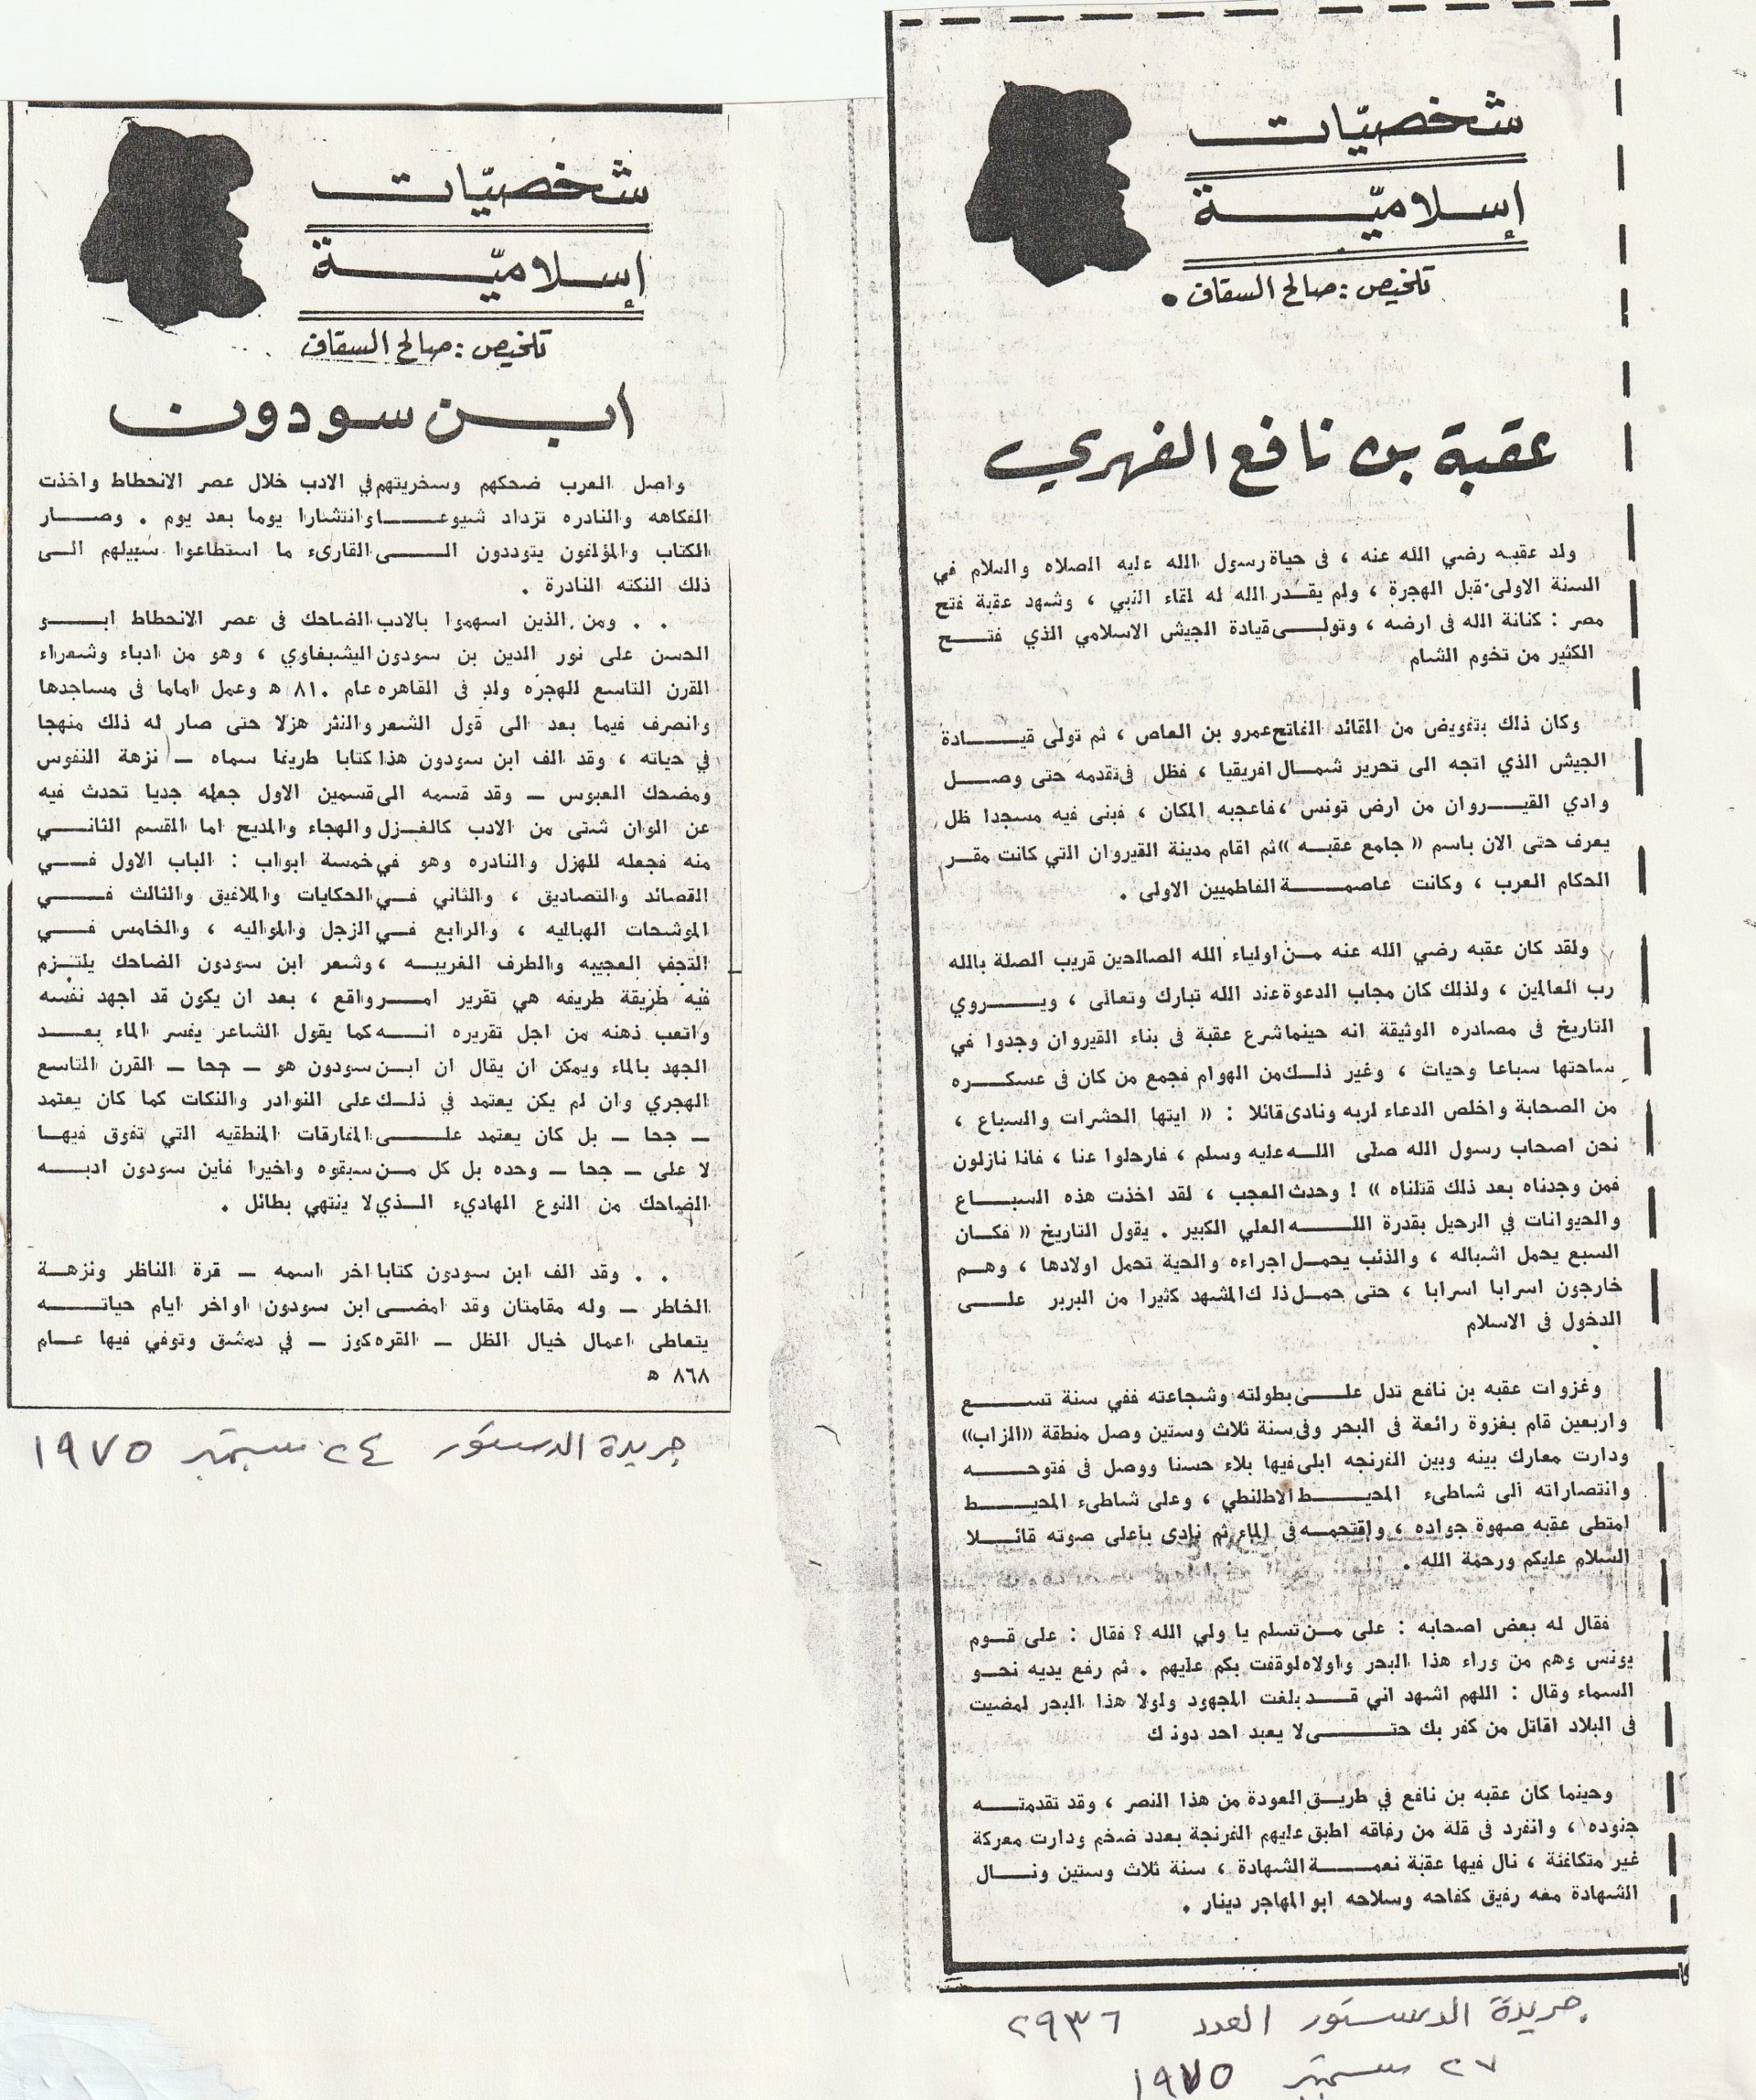 شخصيّات
إسلاميّة
تلخيص : صالح السقاف .
عقبة بن نافع الفهري
ولد عقبه رضي الله عنه ، فى حياة رسول الله عليه الصلاه والسلام في
السنة الاولى قبل الهجرة ، ولم يقدر الله له لقاء النبي ، وشهد عقبة فتح
مصر : كنانة الله فى ارضه ، وتولى قيادة الجيش الاسلامي الذي فتح
الكثير من تخوم الشام
وكان ذلك بتفويض من القائد الفاتح عمرو بن العاص ، ثم تولى قيادة
الجيش الذي اتجه الى تحرير شمال افريقيا ، فظل فى تقدمه حتى وصل
وادي القيروان من ارض تونس ، فاعجبه المكان ، فبنى فيه مسجدا ظل
يعرف حتى الان باسم (( جامع عقبه )) ثم اقام مدينة القيروان التي كانت مقر
الحكام العرب ، وكانت عاصمة الفاطميين الاولى .
ولقد كان عقبه رضي الله عنه من اولياء الله الصالحين قريب الصلة بالله
رب العالمين ، ولذلك كان مجاب الدعوة عند الله تبارك وتعالى ، ويروي
التاريخ فى مصادره الوثيقة انه حينما شرع عقبة فى بناء القيروان وجدوا في
ساحتها سباعا وحيات ، وغير ذلك من الهوام فجمع من كان فى عسكره
من الصحابة واخلص الدعاء لربه ونادى قائلا : (( ايتها الحشرات والسباع ،
نحن اصحاب رسول الله صلى الله عليه وسلم ، فارحلوا عنا ، فانا نازلون
فمن وجدناه بعد ذلك قتلناه )) ! وحدث العجب ، لقد اخذت هذه السباع
والحيوانات في الرحيل بقدرة الله العلي الكبير . يقول التاريخ (( فكان
السبع يحمل اشباله ، والذئب يحمل اجراءه والحية تحمل اولادها ، وهم
خارجون اسرابا اسرابا ، حتى حمل ذلك المشهد كثيرا من البربر على
الدخول فى الاسلام
.
وغزوات عقبه بن نافع تدل على بطولته وشجاعته ففي سنة تسع
واربعين قام بغزوة رائعة فى البحر وفى سنة ثلاث وستين وصل منطقة ((الزاب))
ودارت معارك بينه وبين الفرنجه ابلى فيها بلاء حسنا ووصل فى فتوحه
وانتصاراته الى شاطىء المحيط الاطلنطي ، وعلى شاطىء المحيط
امتطى عقبه صهوة جواده ، واقتحمه فى الماء ثم نادى باعلى صوته قائلا
السلام عليكم ورحمة الله .
فقال له بعض اصحابه : على من تسلم يا ولي الله ؟ فقال : على قوم
يونس وهم من وراء هذا البحر واولاه لوقفت بكم عليهم . ثم رفع يديه نحو
السماء وقال : اللهم اشهد اني قد بلغت المجهود ولولا هذا البحر لمضيت
فى البلاد اقاتل من كفر بك حتى لا يعبد احد دونك
وحينما كان عقبه بن نافع في طريق العودة من هذا النصر ، وقد تقدمته
جنوده ، وانفرد فى قلة من رفاقه اطبق عليهم الفرنجة بعدد ضخم ودارت معركة
غير متكافئة ، نال فيها عقبة نعمة الشهادة ، سنة ثلاث وستين ونال
الشهادة معه رفيق كفاحه وسلاحه ابو المهاجر دينار .
جريدة الدستور العدد ٢٩٣٦
٢٧ سبتمبر ١٩٧٥
شخصيّات
إسلاميّة
تلخيص : صالح السقاف
ابن سودون
واصل العرب ضحكهم وسخريتهم في الادب خلال عصر الانحطاط واخذت
الفكاهه والنادره تزداد شيوعا وانتشارا يوما بعد يوم . وصار
الكتاب والمؤلفون يتوددون الى القارىء ما استطاعوا سبيلهم الى
ذلك النكته النادرة .
. . ومن الذين اسهموا بالادب الضاحك فى عصر الانحطاط ابو
الحسن على نور الدين بن سودون اليشبغاوي ، وهو من ادباء وشعراء
القرن التاسع للهجره ولد فى القاهره عام ٨١٠ ه وعمل اماما فى مساجدها
وانصرف فيما بعد الى قول الشعر والنثر هزلا حتى صار له ذلك منهجا
في حياته ، وقد الف ابن سودون هذا كتابا طريفا سماه – نزهة النفوس
ومضحك العبوس – وقد قسمه الى قسمين الاول جعله جديا تحدث فيه
عن الوان شتى من الادب كالغزل والهجاء والمديح اما القسم الثاني
منه فجعله للهزل والنادره وهو في خمسة ابواب : الباب الاول في
القصائد والتصاديق ، والثاني في الحكايات والملاغيق والثالث في
الموشحات الهباليه ، والرابع في الزجل والمواليه ، والخامس في
التحف العجيبه والطرف الغريبه ، وشعر ابن سودون الضاحك يلتزم
فيه طريقة طريفه هي تقرير امر واقع ، بعد ان يكون قد اجهد نفسه
واتعب ذهنه من اجل تقريره انه كما يقول الشاعر يفسر الماء بعد
الجهد بالماء ويمكن ان يقال ان ابن سودون هو – جحا – القرن التاسع
الهجري وان لم يكن يعتمد في ذلك على النوادر والنكات كما كان يعتمد
– جحا – بل كان يعتمد على المفارقات المنطقيه التي تفوق فيها
لا على – جحا – وحده بل كل من سبقوه واخيرا فأين سودون ادبه
الضاحك من النوع الهاديء الذي لا ينتهي بطائل .
. . وقد الف ابن سودون كتابا اخر اسمه – قرة الناظر ونزهة
الخاطر – وله مقامتان وقد امضى ابن سودون اواخر ايام حياته
يتعاطى اعمال خيال الظل – القره كوز – في دمشق وتوفي فيها عام
٨٦٨ ه
جريدة الدستور ٢٤ سبتمبر ١٩٧٥